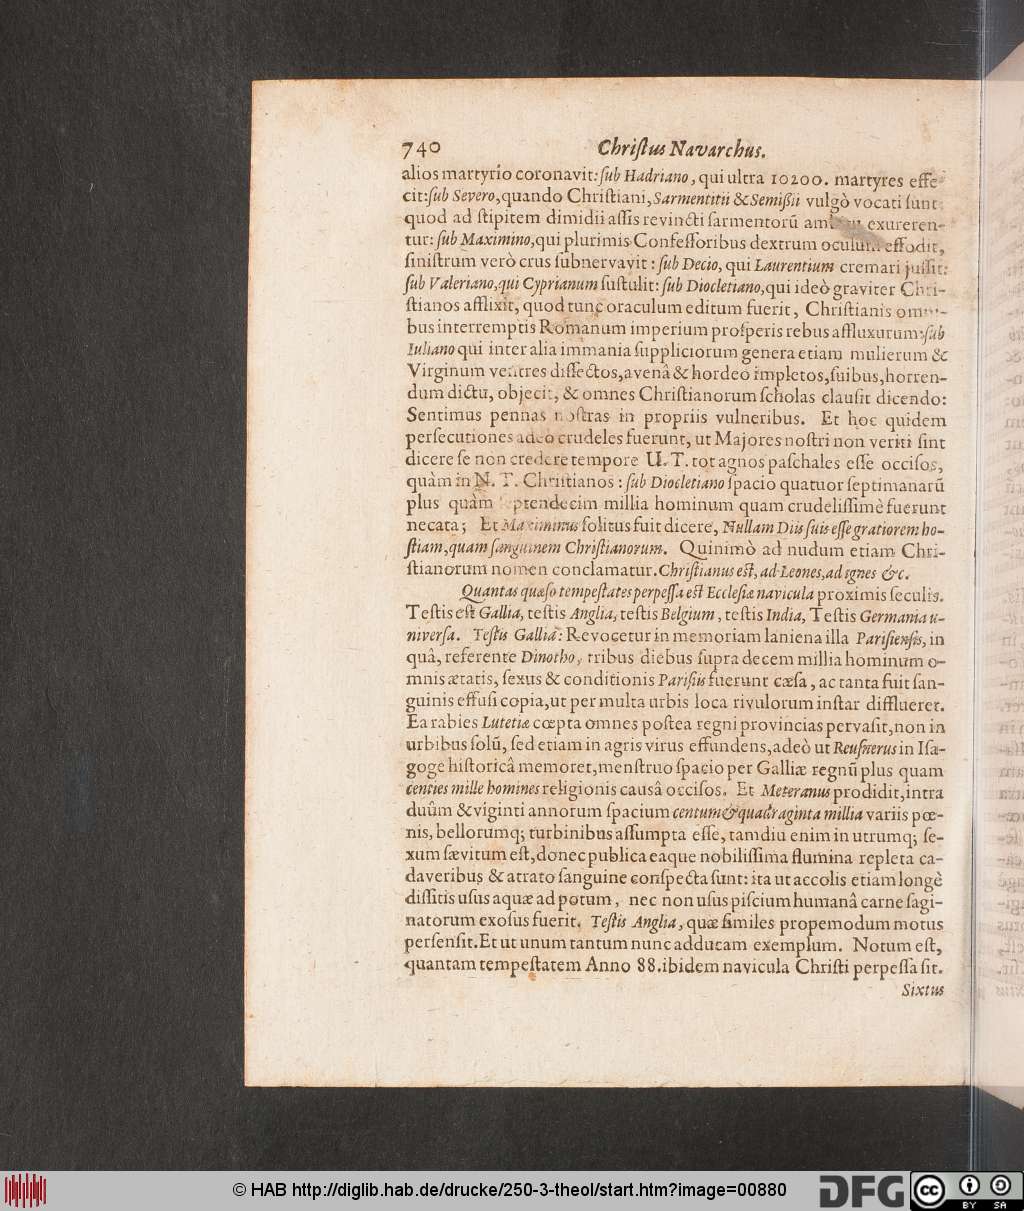 740 Chriſtus Navarchus.
alios martyrio coronavit: ſub Hadriano, qui ultra 10200. martyres effe
cit: ſub Severo, quando Chriſtiani, Sarmentitii & Semißii vulgò vocati ſunt
quod ad ſtipitem dimidii aſſis revincti ſarmentorū exureren-
tur: ſub Maximino, qui plurimis Confeſſoribus dextrum oculum effodit,
ſiniſtrum verò crus ſubnervavit: ſub Decio, qui Laurentium cremari juſſit:
ſub Valeriano, qui Cyprianum ſuſtulit: ſub Diocletiano, qui ideò graviter Chri-
ſtianos afflixit, quod tunc oraculum editum fuerit, Chriſtianis omni-
bus interremptis Romanum imperium proſperis rebus affluxurum: ſub
Iuliano qui inter alia immania ſuppliciorum genera etiam mulierum &
Virginum ventres diſſectos, avenâ & hordeo impletos, ſuibus, horren-
dum dictu, objecit, & omnes Chriſtianorum ſcholas clauſit dicendo:
Sentimus pennas noſtras in propriis vulneribus. Et hoc quidem
perſecutiones adeò crudeles fuerunt, ut Majores noſtri non veriti ſint
dicere ſe non credere tempore U. T. tot agnos paſchales eſſe occiſos,
quàm in N. T. Chriſtianos: ſub Diocletiano ſpacio quatuor ſeptimanarū
plus quàm ſeptendecim millia hominum quam crudeliſſimè fuerunt
necata; Et Maximinus ſolitus fuit dicere, Nullam Diis ſuis eſſe gratiorem ho-
ſtiam, quam ſanguinem Chriſtianorum. Quinimò ad nudum etiam Chri-
ſtianorum nomen conclamatur. Chriſtianus eſt, ad Leones, ad ignes &c.
Quantas quæſo tempeſtates perpeſſa eſt Eccleſiæ navicula proximis ſeculis.
Teſtis eſt Gallia, teſtis Anglia, teſtis Belgium, teſtis India, Teſtis Germania u-
niverſa. Teſtis Gallia: Revocetur in memoriam laniena illa Pariſienſis, in
quâ, referente Dinotho, tribus diebus ſupra decem millia hominum o-
mnis ætatis, ſexus & conditionis Pariſiis fuerunt cæſa, ac tanta fuit ſan-
guinis effuſi copia, ut per multa urbis loca rivulorum inſtar difflueret.
Ea rabies Lutetiæ cœpta omnes poſtea regni provincias pervaſit, non in
urbibus ſolū, ſed etiam in agris virus effundens, adeò ut Reuſnerus in Iſa-
goge hiſtoricâ memoret, menſtruo ſpacio per Galliæ regnū plus quam
centies mille homines religionis causâ occiſos. Et Meteranus prodidit, intra
duûm & viginti annorum ſpacium centum & quadraginta millia variis pœ-
nis, bellorumq; turbinibus aſſumpta eſſe, tamdiu enim in utrumq; ſe-
xum ſævitum eſt, donec publica eaque nobiliſſima flumina repleta ca-
daveribus & atrato ſanguine conſpecta ſunt: ita ut accolis etiam longè
diſſitis uſus aquæ ad potum, nec non uſus piſcium humanâ carne ſagi-
natorum exoſus fuerit. Teſtis Anglia, quæ ſimiles propemodum motus
perſenſit. Et ut unum tantum nunc adducam exemplum. Notum eſt,
quantam tempeſtatem Anno 88. ibidem navicula Chriſti perpeſſa ſit.
Sixtus
© HAB http://diglib.hab.de/drucke/250-3-theol/start.htm?image=00880
DFG
cc BY SA